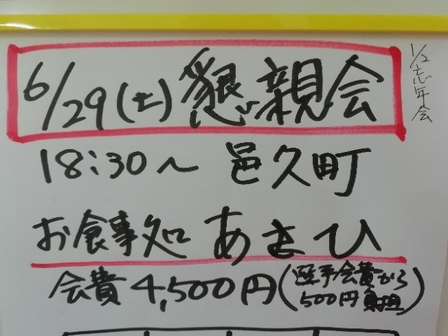 6/29(土)懇親会
1/2忘年会
18:30〜 邑久町
お食事処 あさひ
会費4,500円(選手会費から
500円負担)